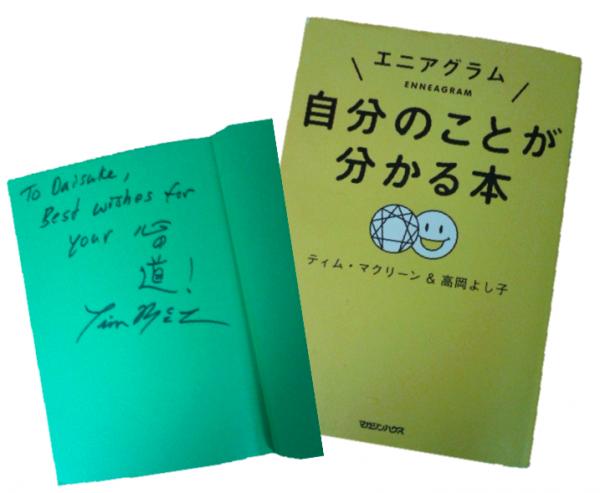 To Daisuke,
Best wishes for
your 心
道!
エニアグラム
ENNEAGRAM
自分のことが
分かる本
ティム・マクリーン & 高岡よし子
マガジンハウス